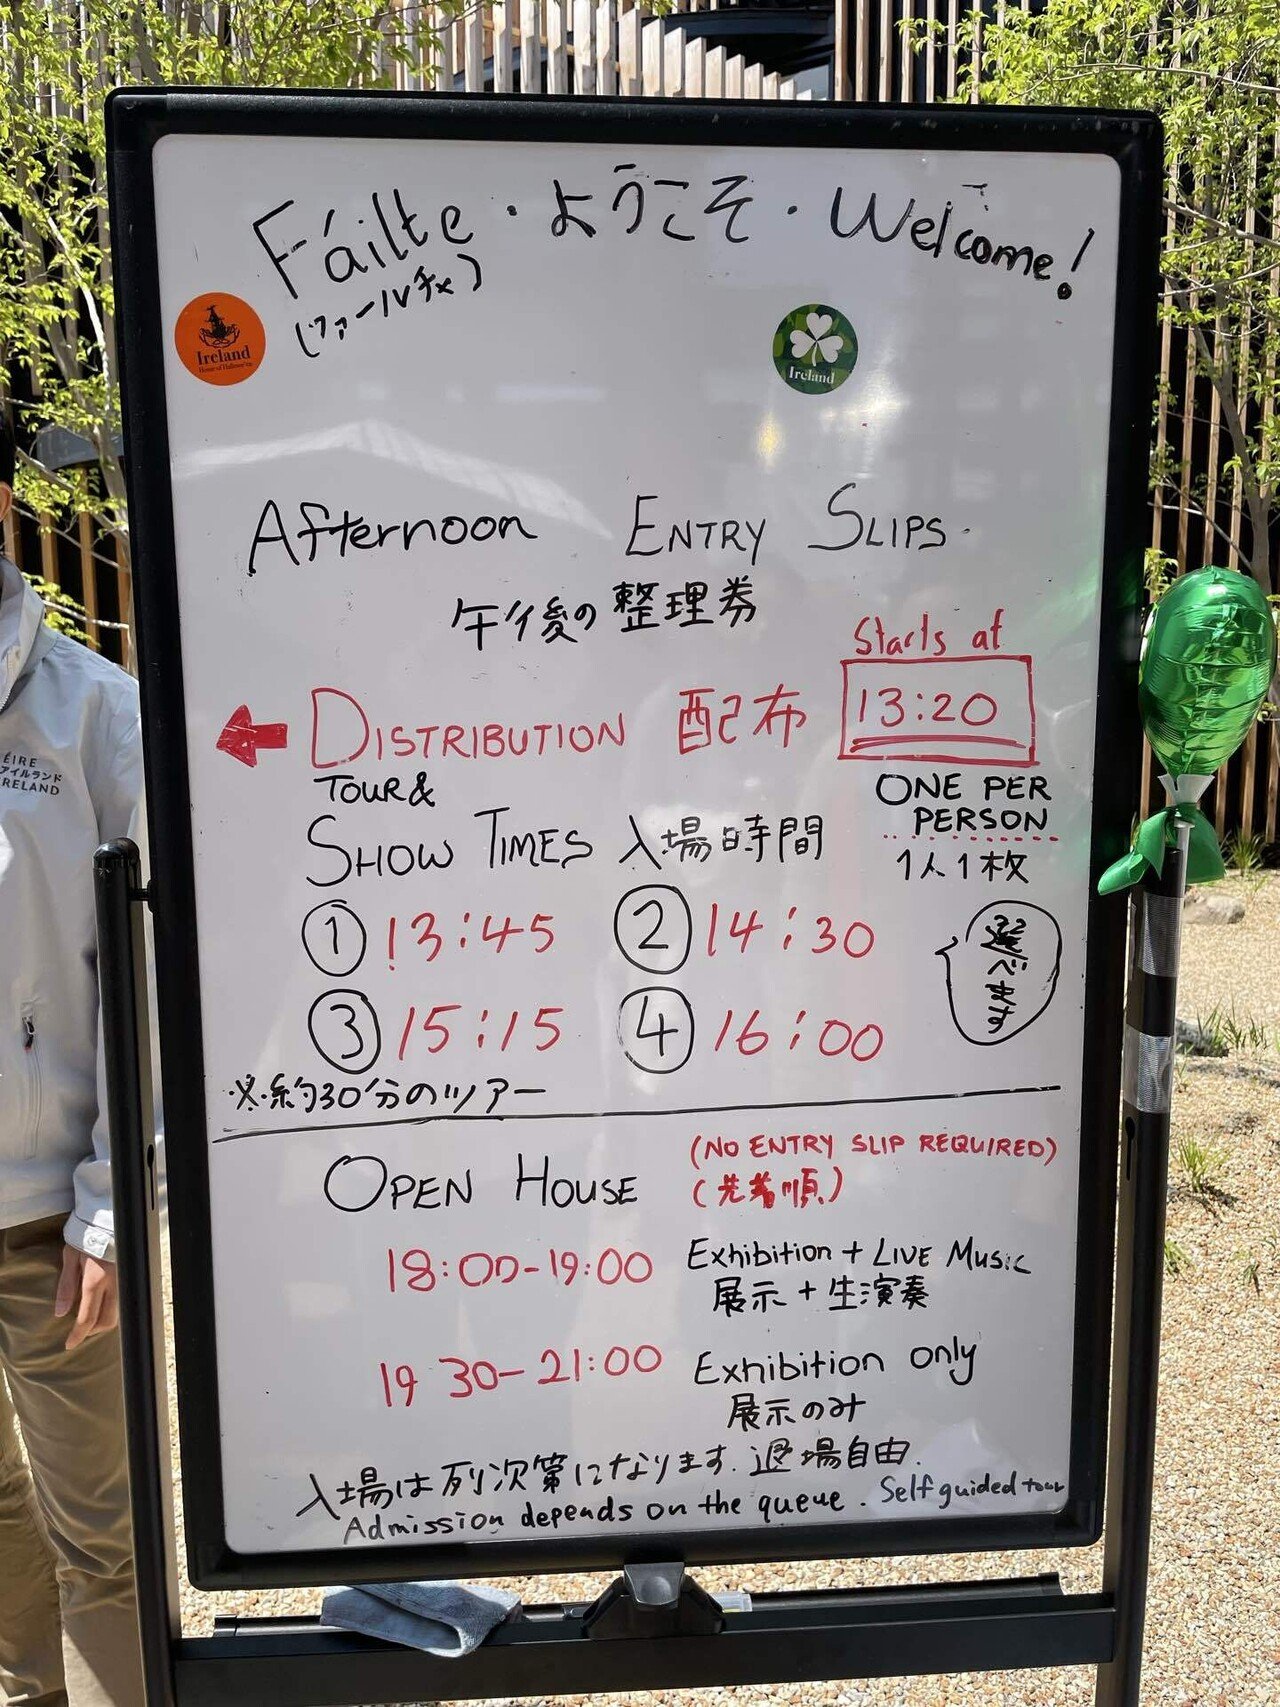 Fáilte・ようこそ・Welcome!
(ファールチャ)
Ireland
Home of Halloween
Ireland
Afternoon ENTRY SLIPS
午後の整理券
Starts at
DISTRIBUTION 配布 13:20
TOUR &
SHOW TIMES 入場時間
ONE PER
PERSON
1人1枚
① 13:45 ② 14:30
③ 15:15 ④ 16:00
選べます
※約30分のツアー
OPEN HOUSE (NO ENTRY SLIP REQUIRED)
(先着順)
18:00-19:00 Exhibition + LIVE MUSIC
展示+生演奏
19 30-21:00 Exhibition only
展示のみ
入場は列次第になります. 退場自由.
Admission depends on the queue. Self guided tour
ÉIRE
アイルランド
IRELAND